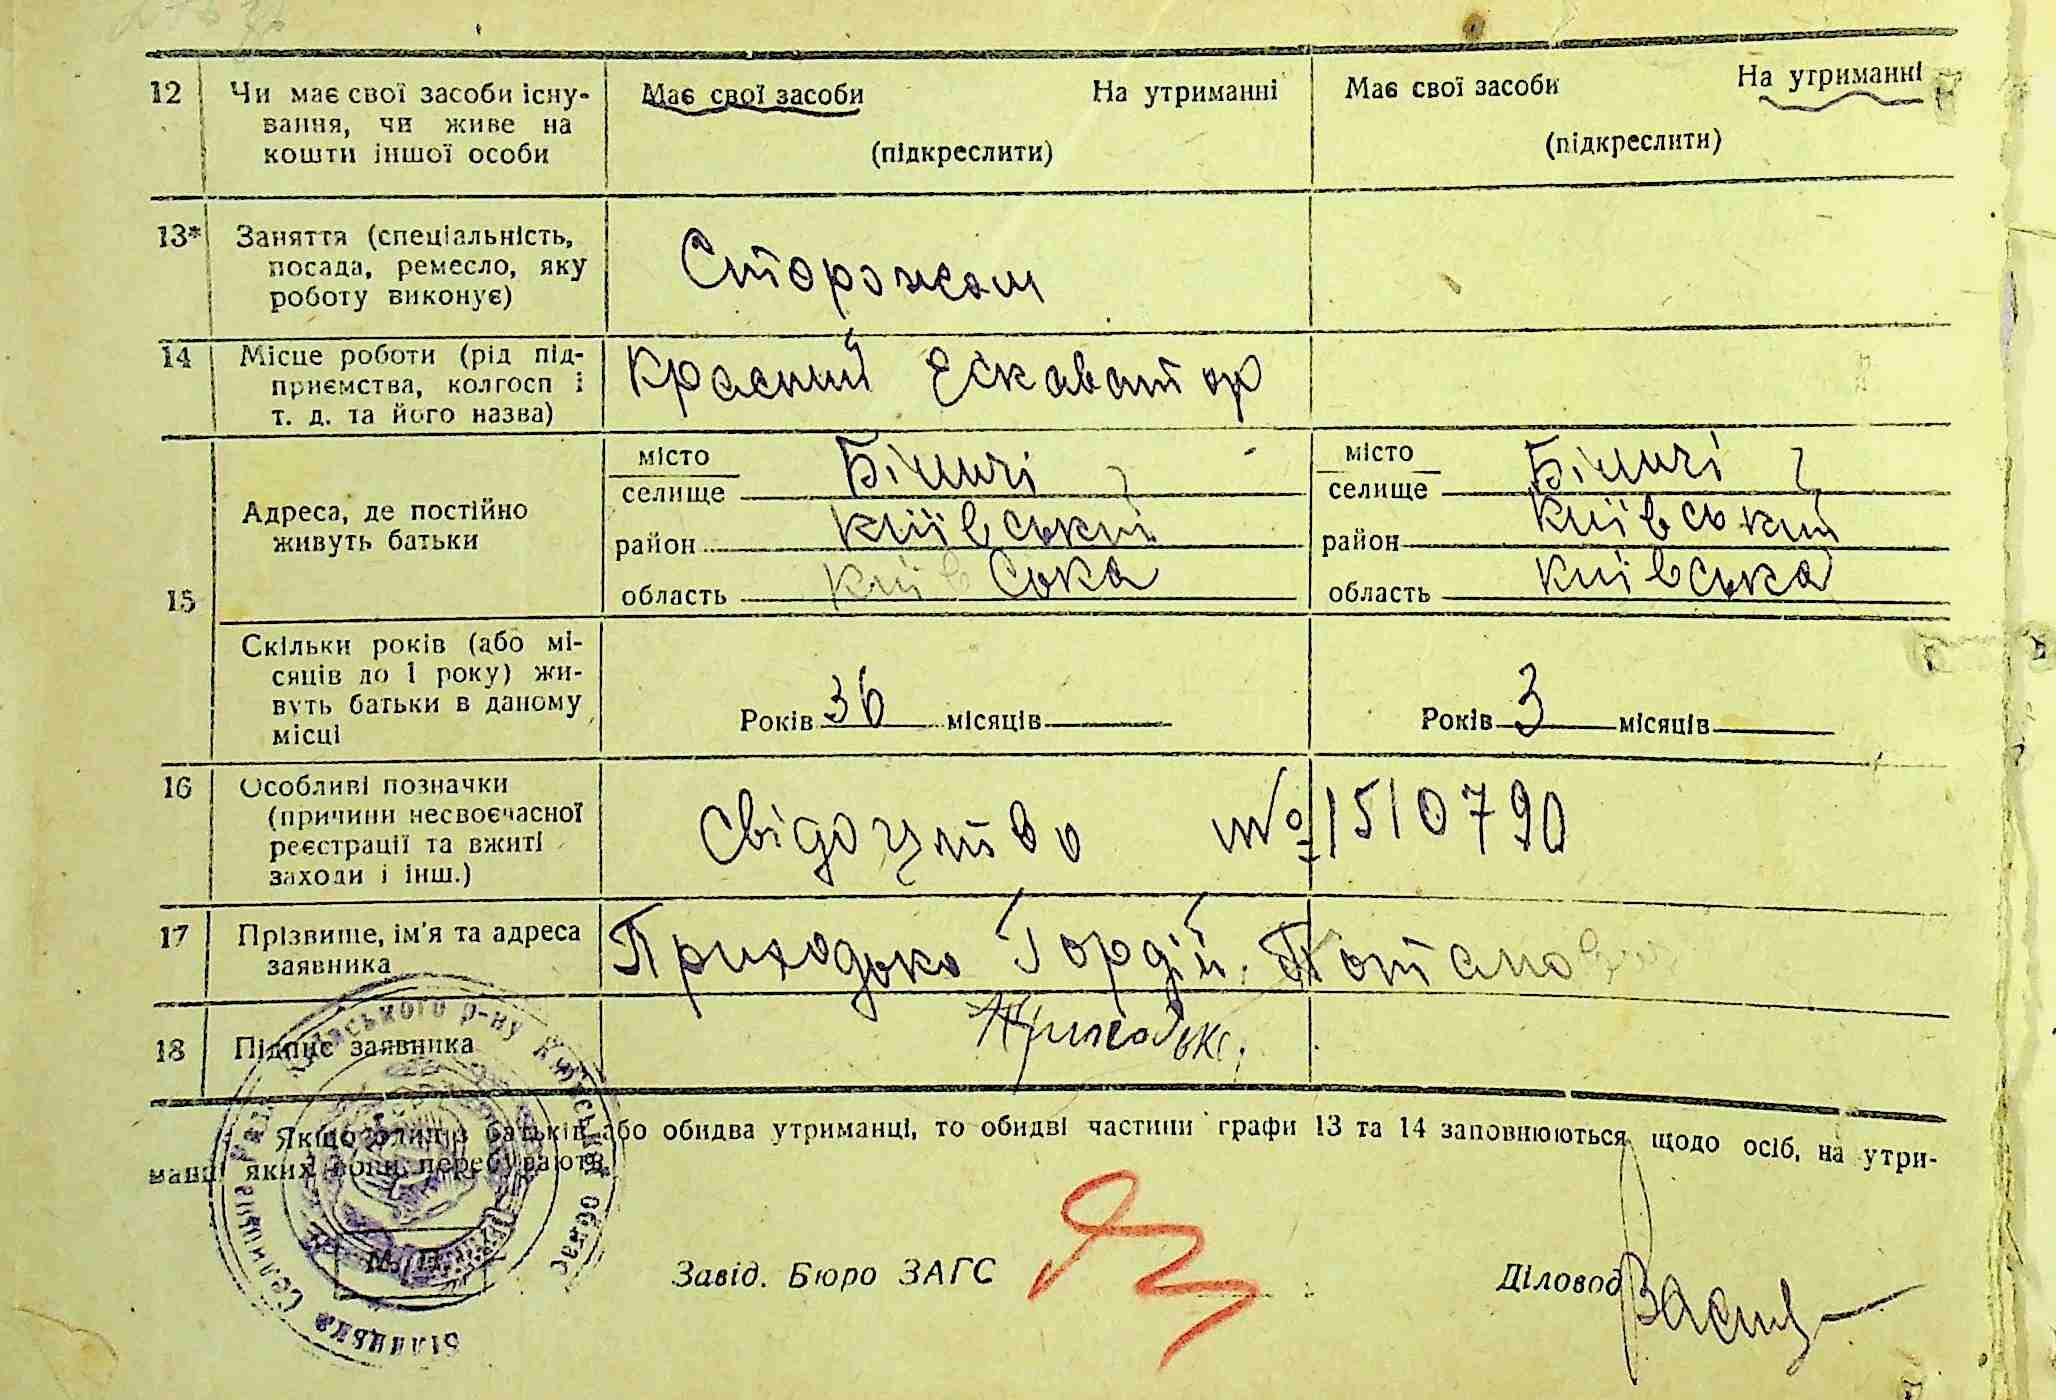 12 Чи має свої засоби існу-
вання, чи живе на
кошти іншої особи
Має свої засоби На утриманні
(підкреслити)
Має свої засоби На утриманні
(підкреслити)
13* Заняття (спеціальність,
посада, ремесло, яку
роботу виконує)
Сторожом
14 Місце роботи (рід під-
приємства, колгосп і
т. д. та його назва)
Красний Ескаватор
15 Адреса, де постійно
живуть батьки
місто
селище Біличі
район київський
область київська
місто
селище Біличі
район київський
область київська
Скільки років (або мі-
сяців до 1 року) жи-
вуть батьки в даному
місці
Років 36 місяців
Років 3 місяців
16 Особливі позначки
(причини несвоєчасної
реєстрації та вжиті
заходи і інш.)
Свідоцтво № 1510790
17 Прізвище, ім'я та адреса
заявника
Приходько Гордій Потапович
18 Підпис заявника
Приходько
Якщо один з батьків або обидва утриманці, то обидві частини графи 13 та 14 заповнюються щодо осіб, на утри-
манні яких вони перебувають
Завід. Бюро ЗАГС
Діловод
М. П.
р-ну Київської област
Біличська Селищна Рада